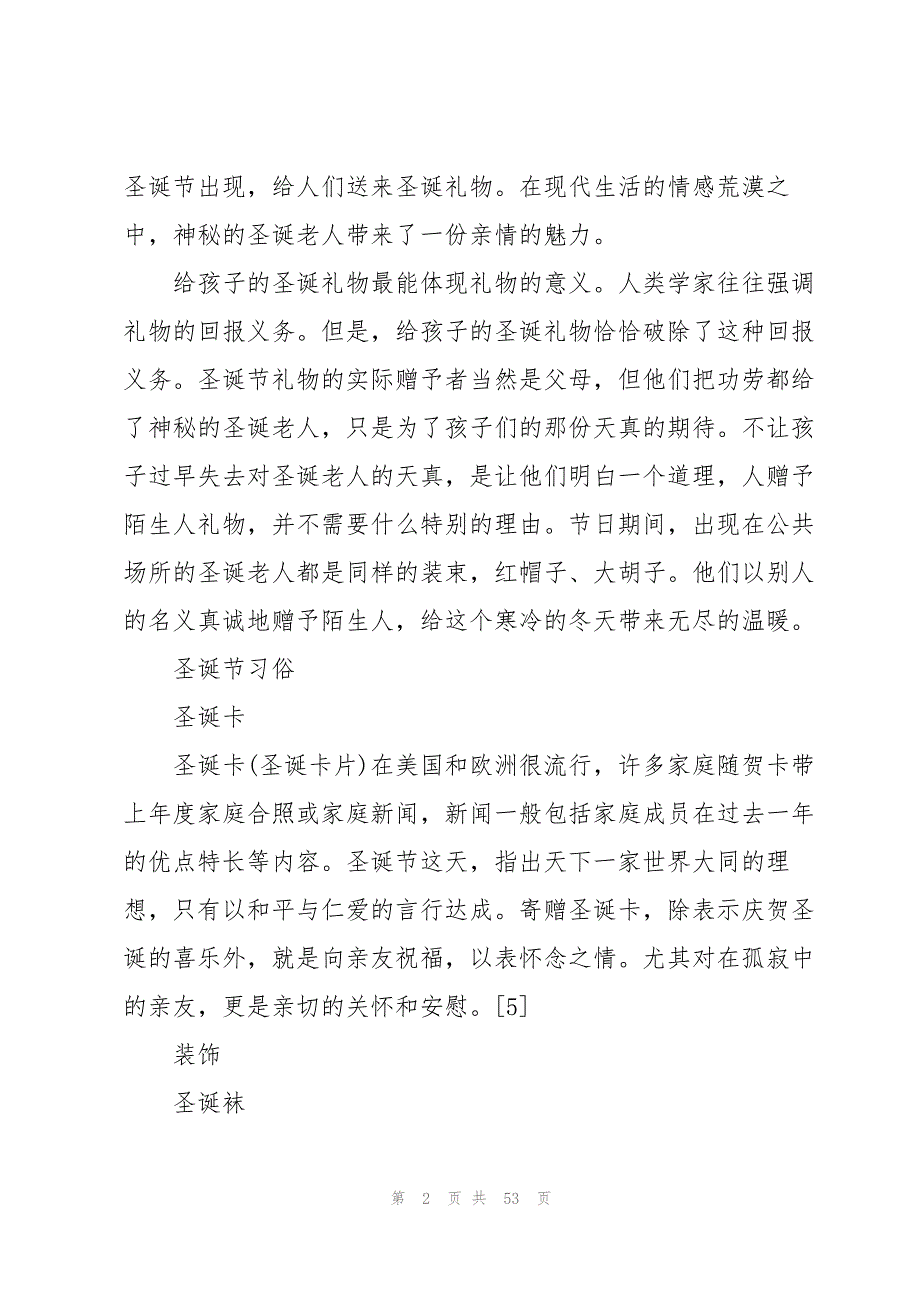 圣诞节出现，给人们送来圣诞礼物。在现代生活的情感荒漠之
中，神秘的圣诞老人带来了一份亲情的魅力。
给孩子的圣诞礼物最能体现礼物的意义。人类学家往往强调
礼物的回报义务。但是，给孩子的圣诞礼物恰恰破除了这种回报
义务。圣诞节礼物的实际赠予者当然是父母，但他们把功劳都给
了神秘的圣诞老人，只是为了孩子们的那份天真的期待。不让孩
子过早失去对圣诞老人的天真，是让他们明白一个道理，人赠予
陌生人礼物，并不需要什么特别的理由。节日期间，出现在公共
场所的圣诞老人都是同样的装束，红帽子、大胡子。他们以别人
的名义真诚地赠予陌生人，给这个寒冷的冬天带来无尽的温暖。
圣诞节习俗
圣诞卡
圣诞卡(圣诞卡片)在美国和欧洲很流行，许多家庭随贺卡带
上年度家庭合照或家庭新闻，新闻一般包括家庭成员在过去一年
的优点特长等内容。圣诞节这天，指出天下一家世界大同的理
想，只有以和平与仁爱的言行达成。寄赠圣诞卡，除表示庆贺圣
诞的喜乐外，就是向亲友祝福，以表怀念之情。尤其对在孤寂中
的亲友，更是亲切的关怀和安慰。[5]
装饰
圣诞袜
第 2 页 共 53 页